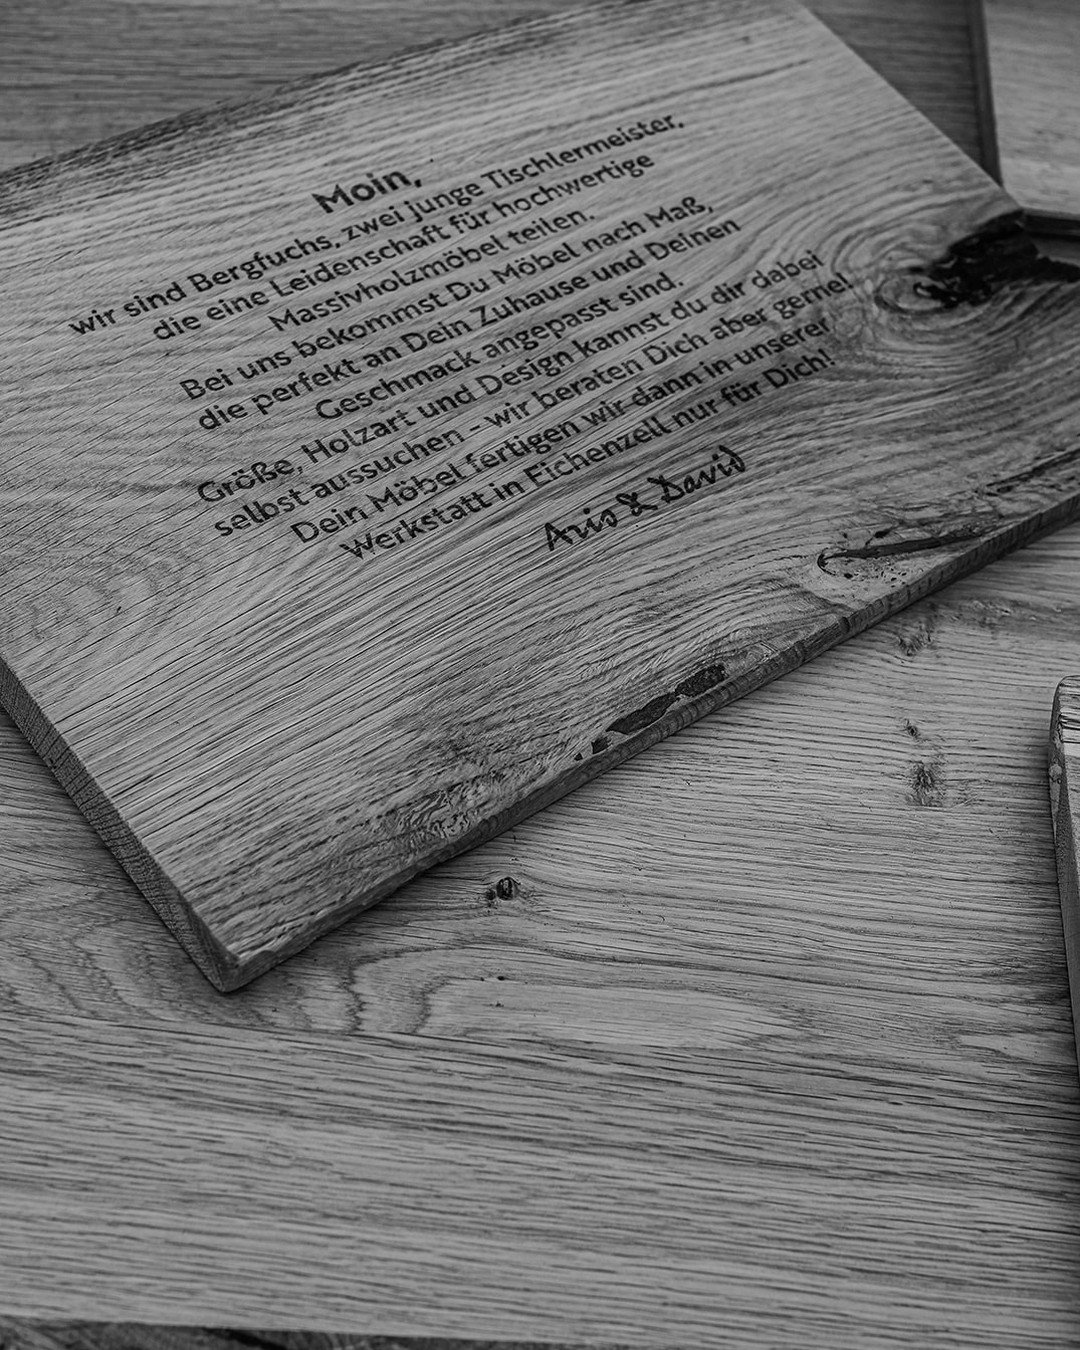 Moin,
wir sind Bergfuchs, zwei junge Tischlermeister,
die eine Leidenschaft für hochwertige
Massivholzmöbel teilen.
Bei uns bekommst Du Möbel nach Maß,
die perfekt an Dein Zuhause und Deinen
Geschmack angepasst sind.
Größe, Holzart und Design kannst du dir dabei
selbst aussuchen - wir beraten Dich aber gerne!
Dein Möbel fertigen wir dann in unserer
Werkstatt in Eichenzell nur für Dich!
Aris & David